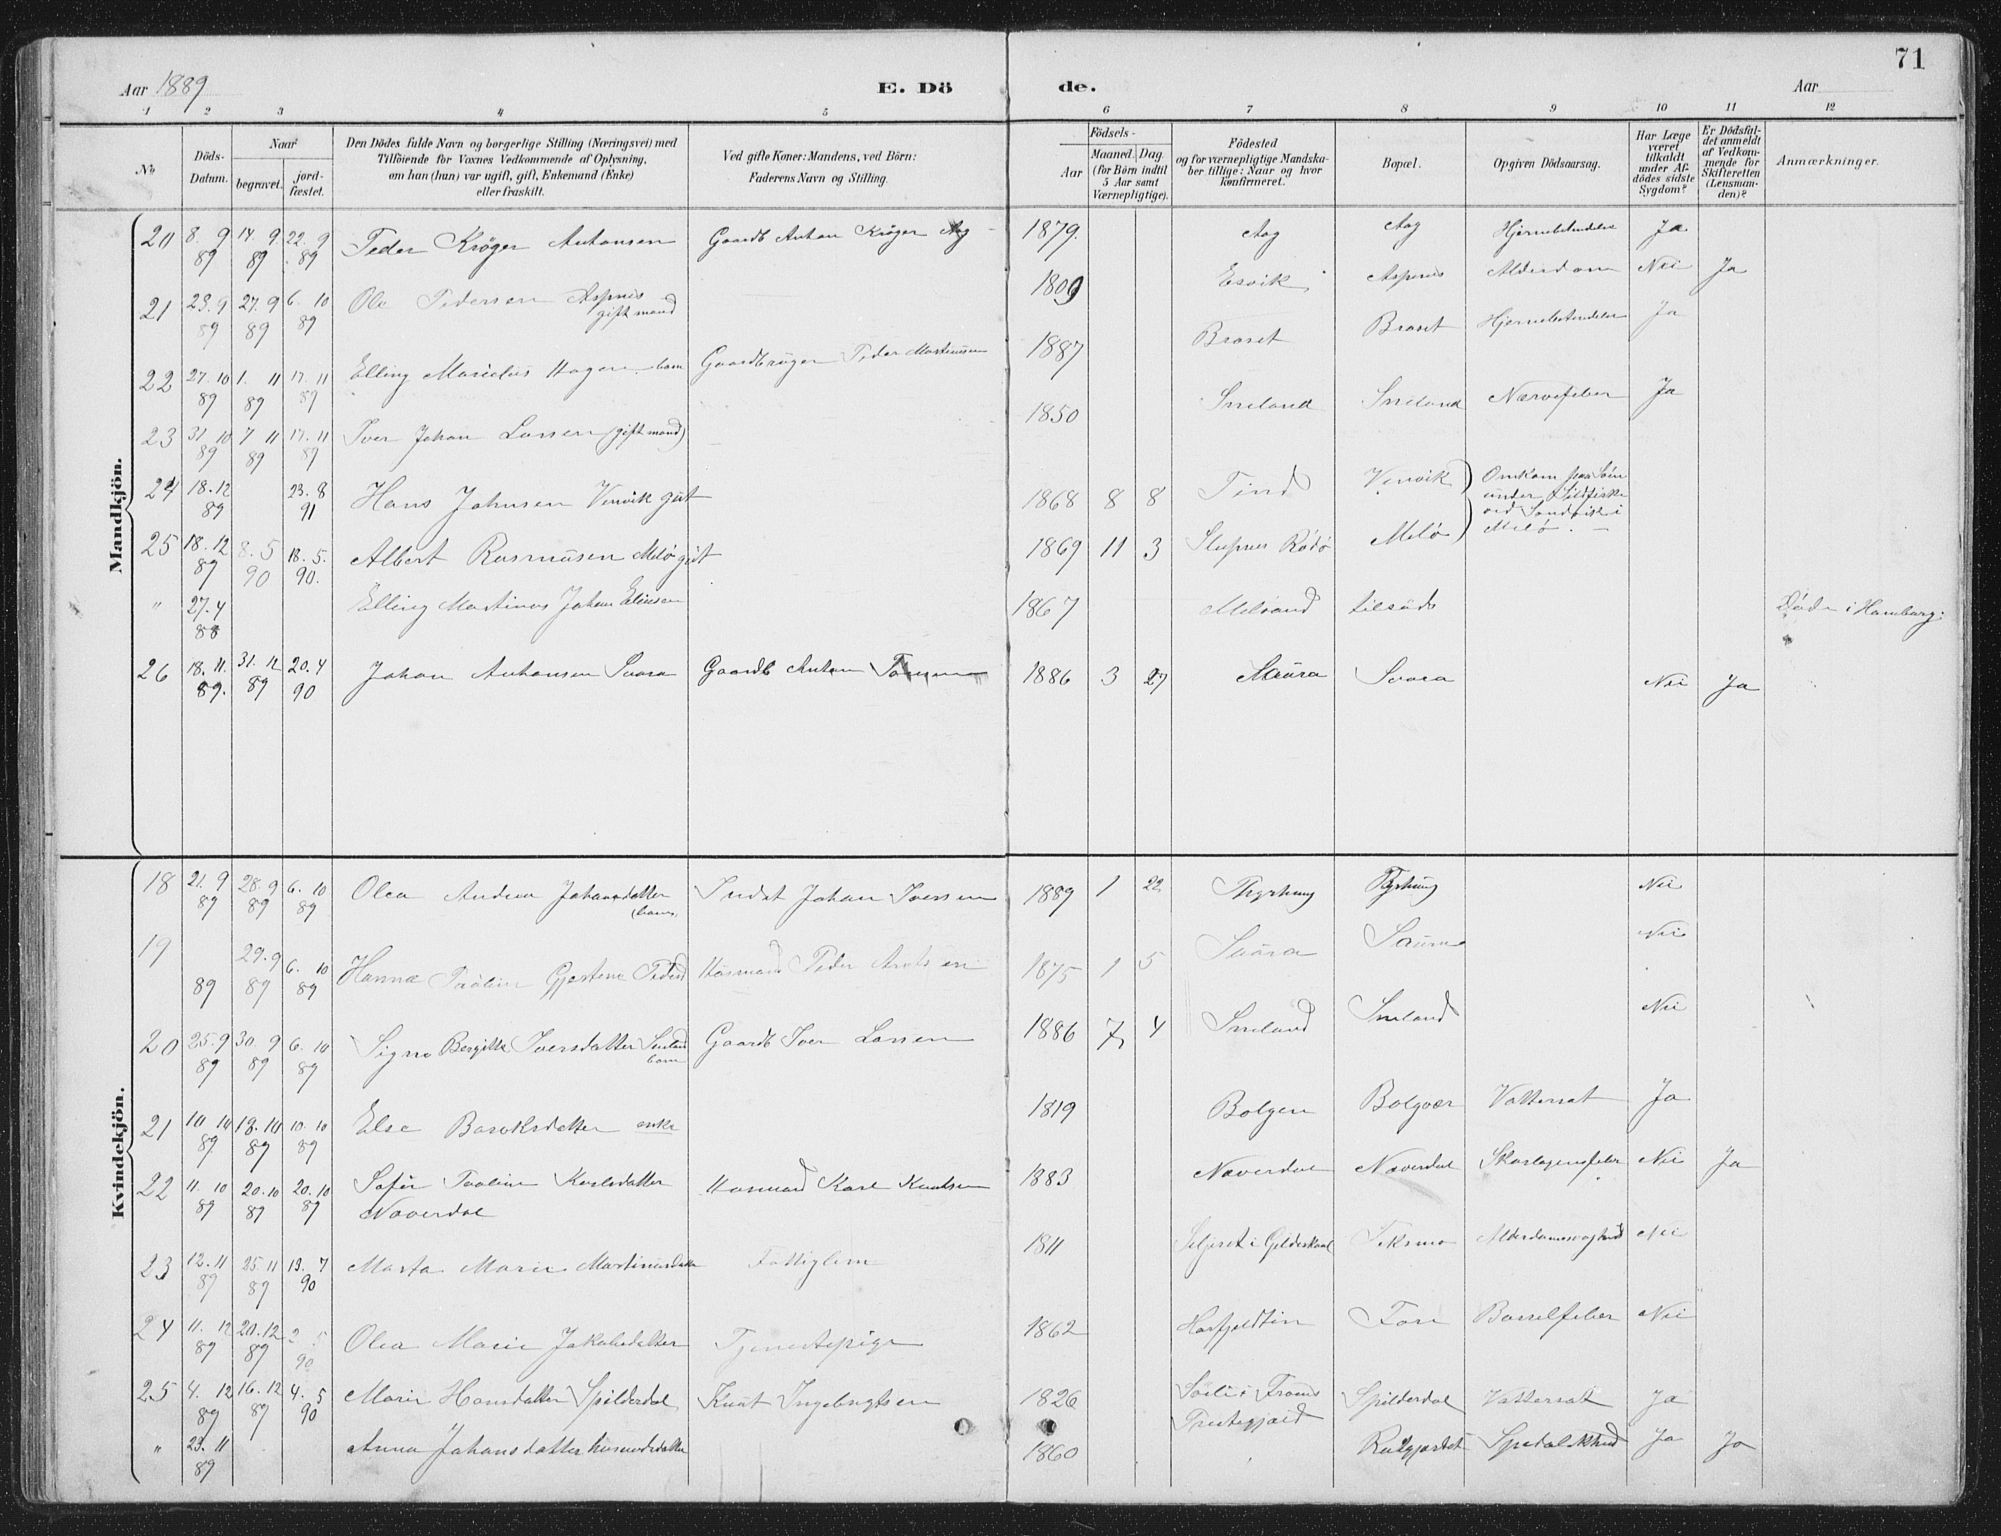 71
Aar 1889
E. Dö
de.
Aar
1 2 3 4 5 6 7 8 9 10 11 12
No
Döds-Datum.
Naar
begravet.
jord-fæstet.
Den Dödes fulde Navn og borgerlige Stilling (Næringsvei) med
Tilföiende for Voxnes Vedkommende af Oplysning,
om han (hun) var ugift, gift, Enkemand (Enke)
eller fraskilt.
Ved gifte Koner: Mandens, ved Börn:
Faderens Navn og Stilling.
Födsels-
Aar
Maaned. Dag.
(for Börn indtil
5 Aar samt
Værnepligtige).
Födested
og for værnepligtige Mandska-
ber tillige: Naar og hvor
konfirmeret.
Bopæl.
Opgiven Dödsaarsag.
Har Læge
været
tilkaldt
under Af-
dödes sidste
Sygdom?
Er Dödsfal-
det anmeldt
af Vedkom-
mende for
Skifteretten
(Lensman-
den)?
Anmærkninger.
Mandkjön.
20 8. 9 89 14. 9 89 22. 9 89 Peder Krøger Antonsen Gaardb Anton Krøger Aag 1879. Aag Aag Ja
21 23. 9 89 27. 9 89 6. 10 89 Ole Pedersen Aspnes gift mand 1809 Esvik Aspnes Alderdom Nei Ja
22 27. 10 89 1. 11 89 17. 11 89 Elling Hagen barn Gaardbruger Peder Martinusen 1887 Braset Braset Ja
23 31. 10 89 7. 11 89 17. 11 89 Iver Johan Larsen (gift mand) 1850 Sneland Sneland Nervefeber Ja
24 18. 12 89 23. 8 91 Hans Johnsen Vervik gut 1868 8 8 Tind Vervik Omkom paa Søen
under Sildfiske
ved i
Melø.
25 18. 12 89 8. 5 90 18. 5. 90. Albert Rasmusen Melø gut 1869 11 3 Rødø Melø
" 27. 4 88 Elling Martinus Johan 1867 Meløand Døde i Hamburg.
26 18. 11. 89. 31. 12 89 20. 4 90 Johan Antonsen Svara Gaardb Anton 1886 3 27 Svara Nei Ja
Kvindekjön.
18 21. 9 89 28. 9 89 6. 10 89 Olea Andrea Johansdatter (barn) Johan Iversen 1889 1 22 Nei
19 89 29. 9 89 6. 10 89 Hanna Husmand Peder 1875 1 5 Nei
20 25. 9 89 30. 9 89 6. 10 89 Signe Bergitte Iversdatter Sneland barn Gaardb Iver Larsen 1886 7 4 Sneland Sneland Nei
21 10. 10 89 13. 10 89 10. 10 89 Else enke 1819 Bolgen Bolgvær Vattersot Ja
22 11. 10 89 20. 10 89 20. 10 89 Karlsdatter
Næverdal Husmand Karl Knutsen 1883 Næverdal Næverdal Skarlagensfeber Nei Ja
23 12. 11 89 25. 11 89 13. 7 90 Marta Marie Martinusdatter Fattiglem 1811 i Gildeskaal Nei
24 11. 12 89 20. 12 89 2. 5 90 Olea Marie Jakobsdatter Tjenestepige 1862 Fore Barselfeber Nei
25 4. 12 89 16. 12 89 4. 5 90 Marie Hansdatter Spilderdal Knut Ingebrigtsen 1826 Spilderdal Vattersot Ja
" 23. 11 89 Anna Johansdatter husmdsdatter 1860 Spedalskhed Ja Ja